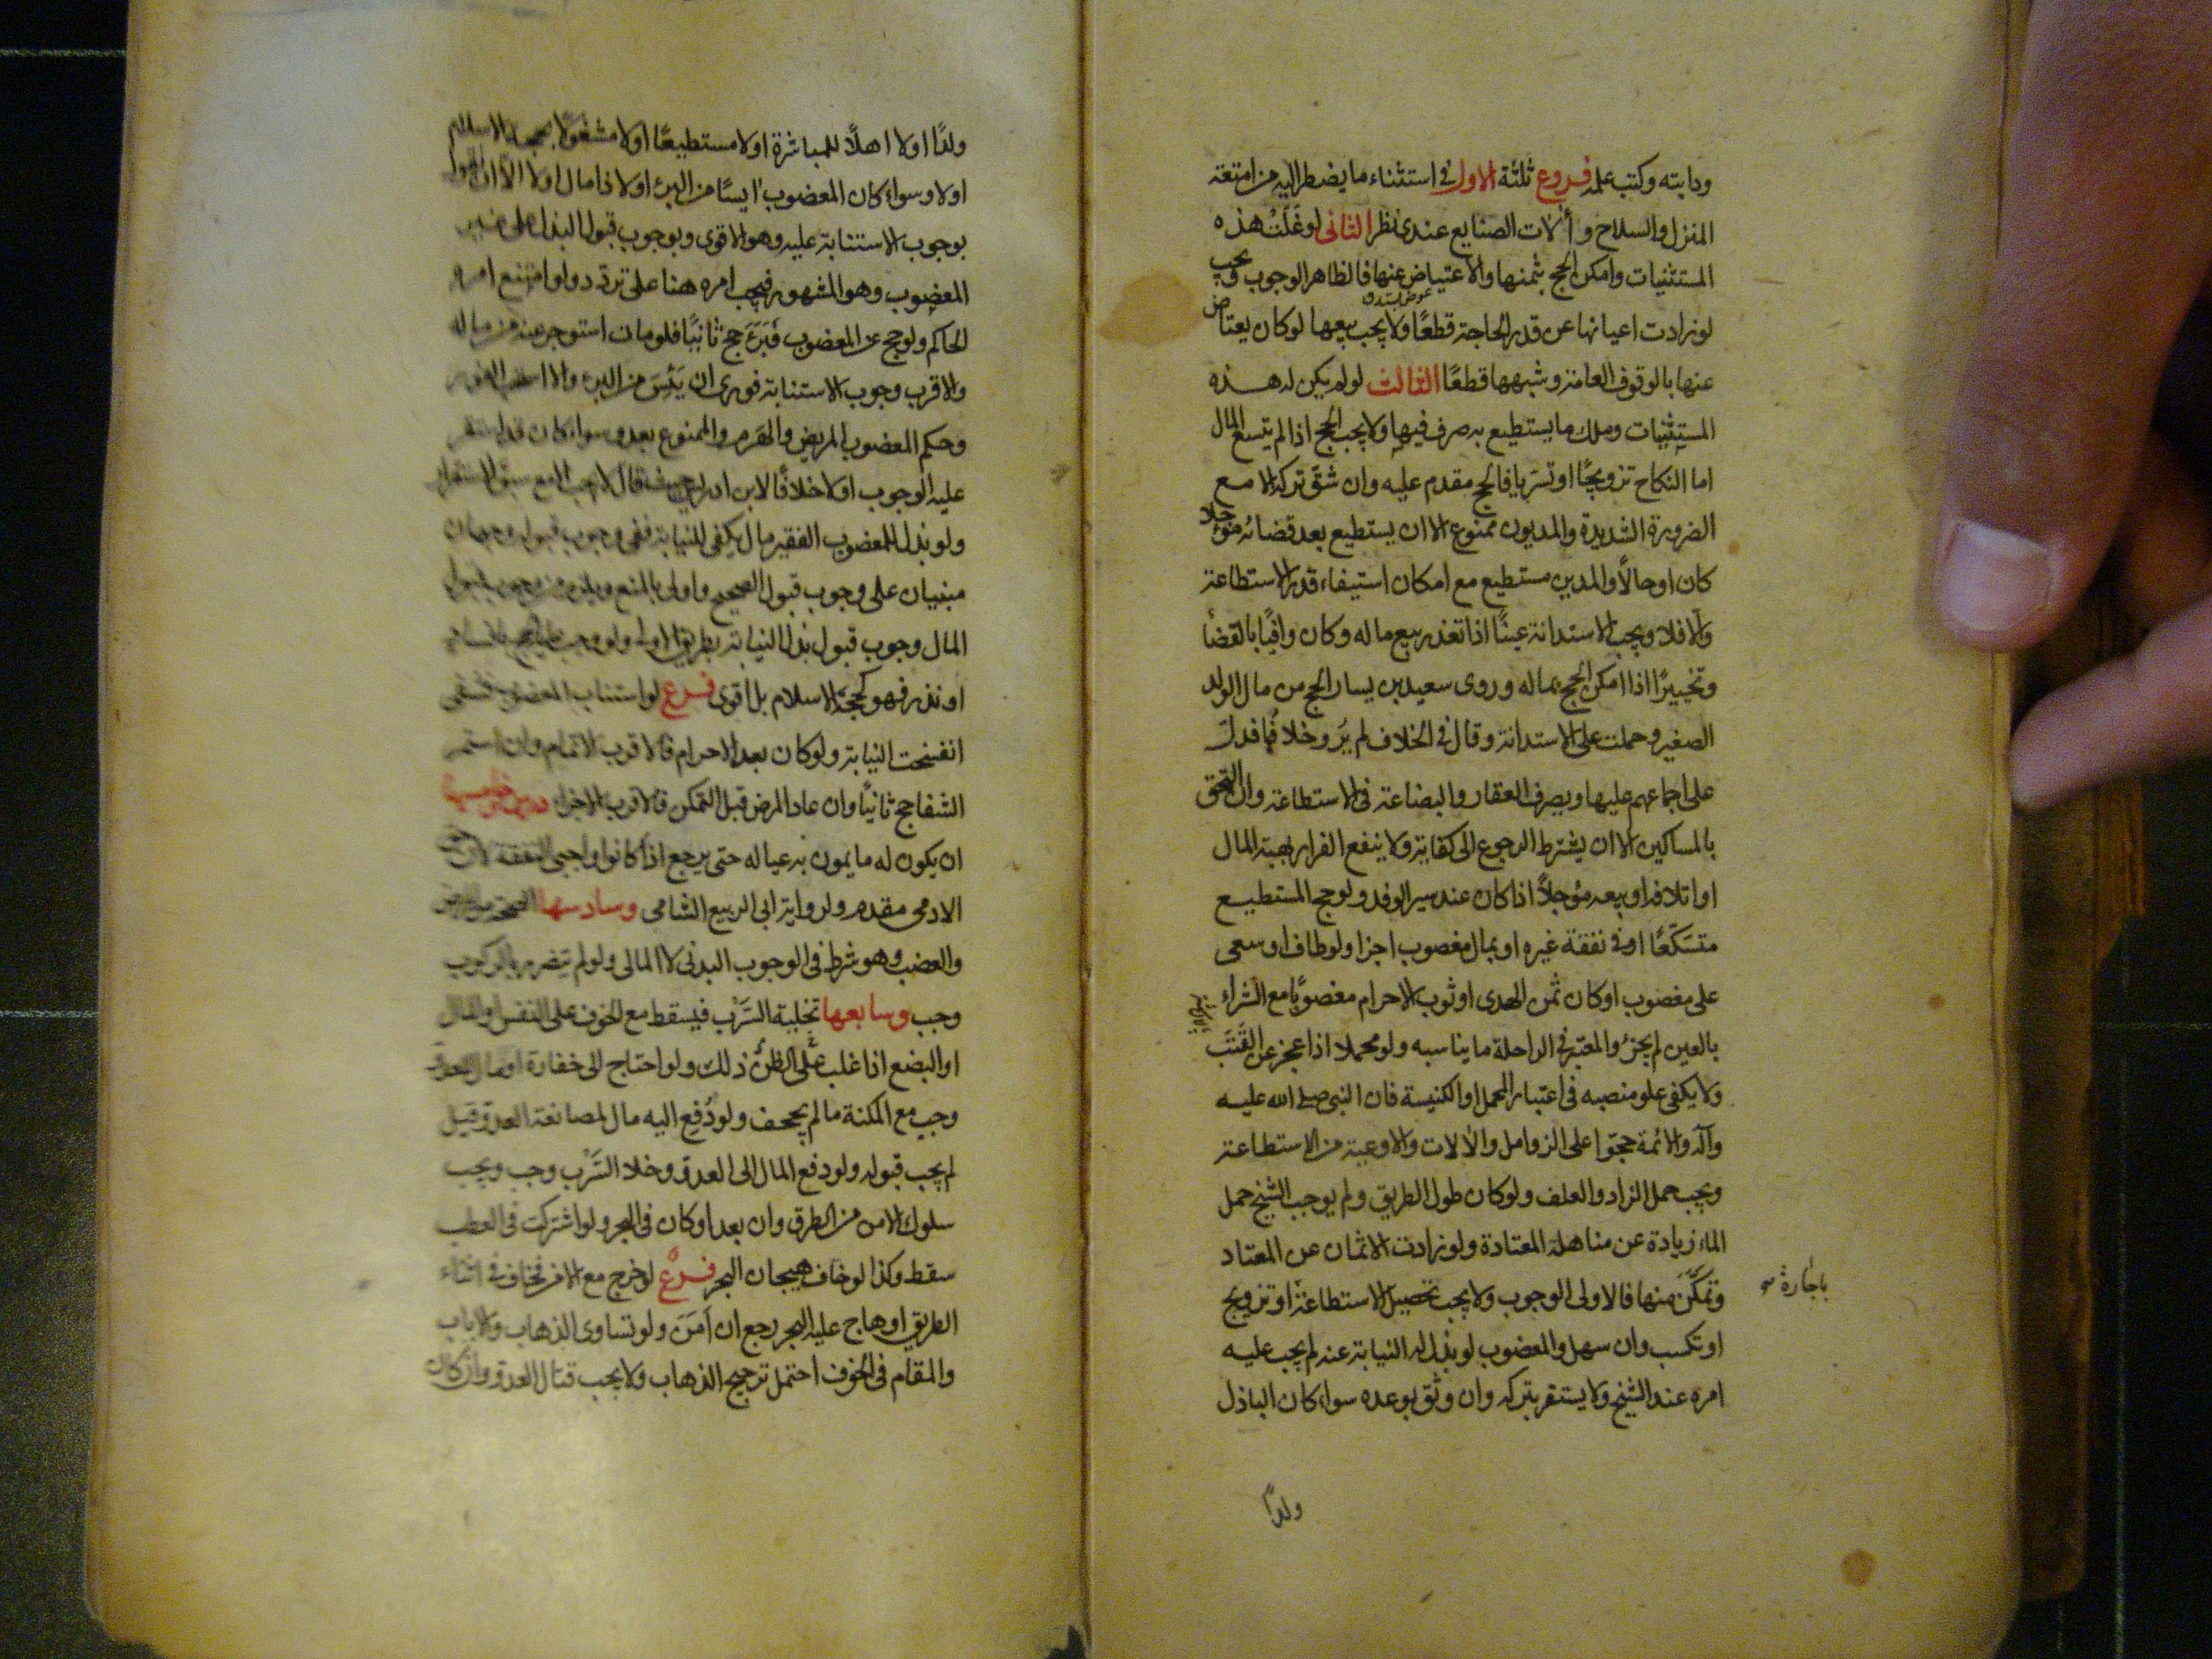 ودابته وكتب علمه فروع ثلثة الاول في استثناء ما يضطر اليه من امتعة
المنزل والسلاح وآلات الصنايع عندى نظر الثانى لو غلت هذه
المستثنيات وامكن الحج بثمنها والاعتياض عنها فالظاهر الوجوب ويجب
لو زادت اعيانها عن قدر الحاجة قطعًا ولا يجب بيعها لو كان يعتاض
عنها بالوقوف العامة وشبهها قطعًا الثالث لو لم يكن له هذه
المستثنيات وملك ما يستطيع به صرف فيها ولا يجب الحج اذا لم يتسع المال
اما النكاح تزويجًا او تسريا فالحج مقدم عليه وان شق تركه الا مع
الضرورة الشديدة والمديون ممنوع الا ان يستطيع بعد قضائه مؤجلا
كان او حالًا والمدين مستطيع مع امكان استيفاء قدر الاستطاعة
والا فلا ويجب الاستدانة عينًا اذا تعذر بيع ماله وكان وافيًا بالقضا
وتخييرًا اذا امكن الحج بماله وروى سعيد بن يسار الحج من مال الولد
الصغير وحملت على الاستدانة وقال في الخلاف لم يرو خلافها فدل
على اجماعهم عليها ويصرف العقار والبضاعة فى الاستطاعة وان التحق
بالمساكين الا ان يشترط الرجوع الى كفاية ولا ينفع الفرار بهبة المال
او اتلافه او بيعه مؤجلًا اذا كان عند سير الوفد ولو حج المستطيع
متسكعًا او في نفقة غيره او بمال مغصوب اجزا ولو طاف او سعى
على مغصوب او كان ثمن الهدى او ثوب الاحرام مغصوبًا مع الشراء
بالعين لم يجز والمعتبر في الراحلة ما يناسبه ولو محملا اذا عجز عن القتب
ولا يكفى علو منصبه فى اعتبار المحمل او الكنيسة فان النبى صلى الله عليه
وآله والائمة حجّوا على الزوامل والآلات والاوعية من الاستطاعة
ويجب حمل الزاد والعلف ولو كان طول الطريق ولم يوجب الشيخ حمل
الماء زيادة عن مناهله المعتادة ولو زادت الاثمان عن المعتاد
وتمكّن منها فالاولى الوجوب ولا يجب تحصيل الاستطاعة او تزويج
باجارة
او تكسب وان سهل والمعضوب لو بذل له النيابة عنه لم يجب عليه
امره عند الشيخ ولا يستقر بتركه وان وثق بوعده سواء كان الباذل
ولدًا
ولدًا او لا اهلًا للمباشرة او لا مستطيعًا او لا مشغولًا بحجة الاسلام
او لا وسواء كان المعضوب ايسًا من البرء او لا ذا مال او لا الا ان نقول
بوجوب الاستنابة عليه وهو الاقوى وبوجوب قبول البذل على غير
المعضوب وهو المشهور فيجب امره هنا على تردد ولو امتنع امره
الحاكم ولو حج عن المعضوب فبرئ حج ثانيًا فلو مات استوجر عنه من ماله
والاقرب وجوب الاستنابة فورى ان يئس من البرء والا استحب الفور
وحكم المعضوب المريض والهرم والممنوع بعدو سواء كان قد استقر
عليه الوجوب او لا خلافًا لابن ادريس قال لا يجب الا مع سبق الاستقرار
ولو بذل للمعضوب الفقير مال يكفى للنيابة ففى وجوب قبوله وجهان
مبنيان على وجوب قبول الصحيح واولى بالمنع ويلزم من وجوب قبول
المال وجوب قبول بذل النيابة بطريق الاولى ولو وجب عليه حج بافساد
او نذر فهو كحجة الاسلام بل اقوى فرع لو استناب المعضوب فشفى
انفسخت النيابة ولو كان بعد الاحرام فالاقرب الاتمام وان استمر
الشفا حج ثانيًا وان عاد المرض قبل التمكن فالاقرب الاجزاء وخامسها
ان يكون له ما يمون به عياله حتى يرجع اذا كانوا واجبى النفقة لان حق
الادمى مقدم ولرواية ابى الربيع الشامى وسادسها الصحة من المرض
والعضب وهو شرط فى الوجوب البدنى لا المالى ولو لم يتضرر بالركوب
وجب وسابعها تخلية السرب فيسقط مع الخوف على النفس او المال
او البضع اذا غلب على الظن ذلك ولو احتاج الى خفارة او مال للعدو
وجب مع المكنة ما لم يجحف ولو دفع اليه مال لمصانعة العدو قيل
لم يجب قبوله ولو دفع المال الى العدو وخلا السرب وجب ويجب
سلوك الامن من الطرق وان بعد او كان فى البحر ولو اشتركت فى العطب
سقط وكذا لو خاف هيجان البحر فرع لو خرج مع الامن فخاف في اثناء
الطريق او هاج عليه البحر رجع ان امن ولو تساوى الذهاب والاياب
والمقام فى الخوف احتمل ترجيح الذهاب ولا يجب قتال العدو وان كان